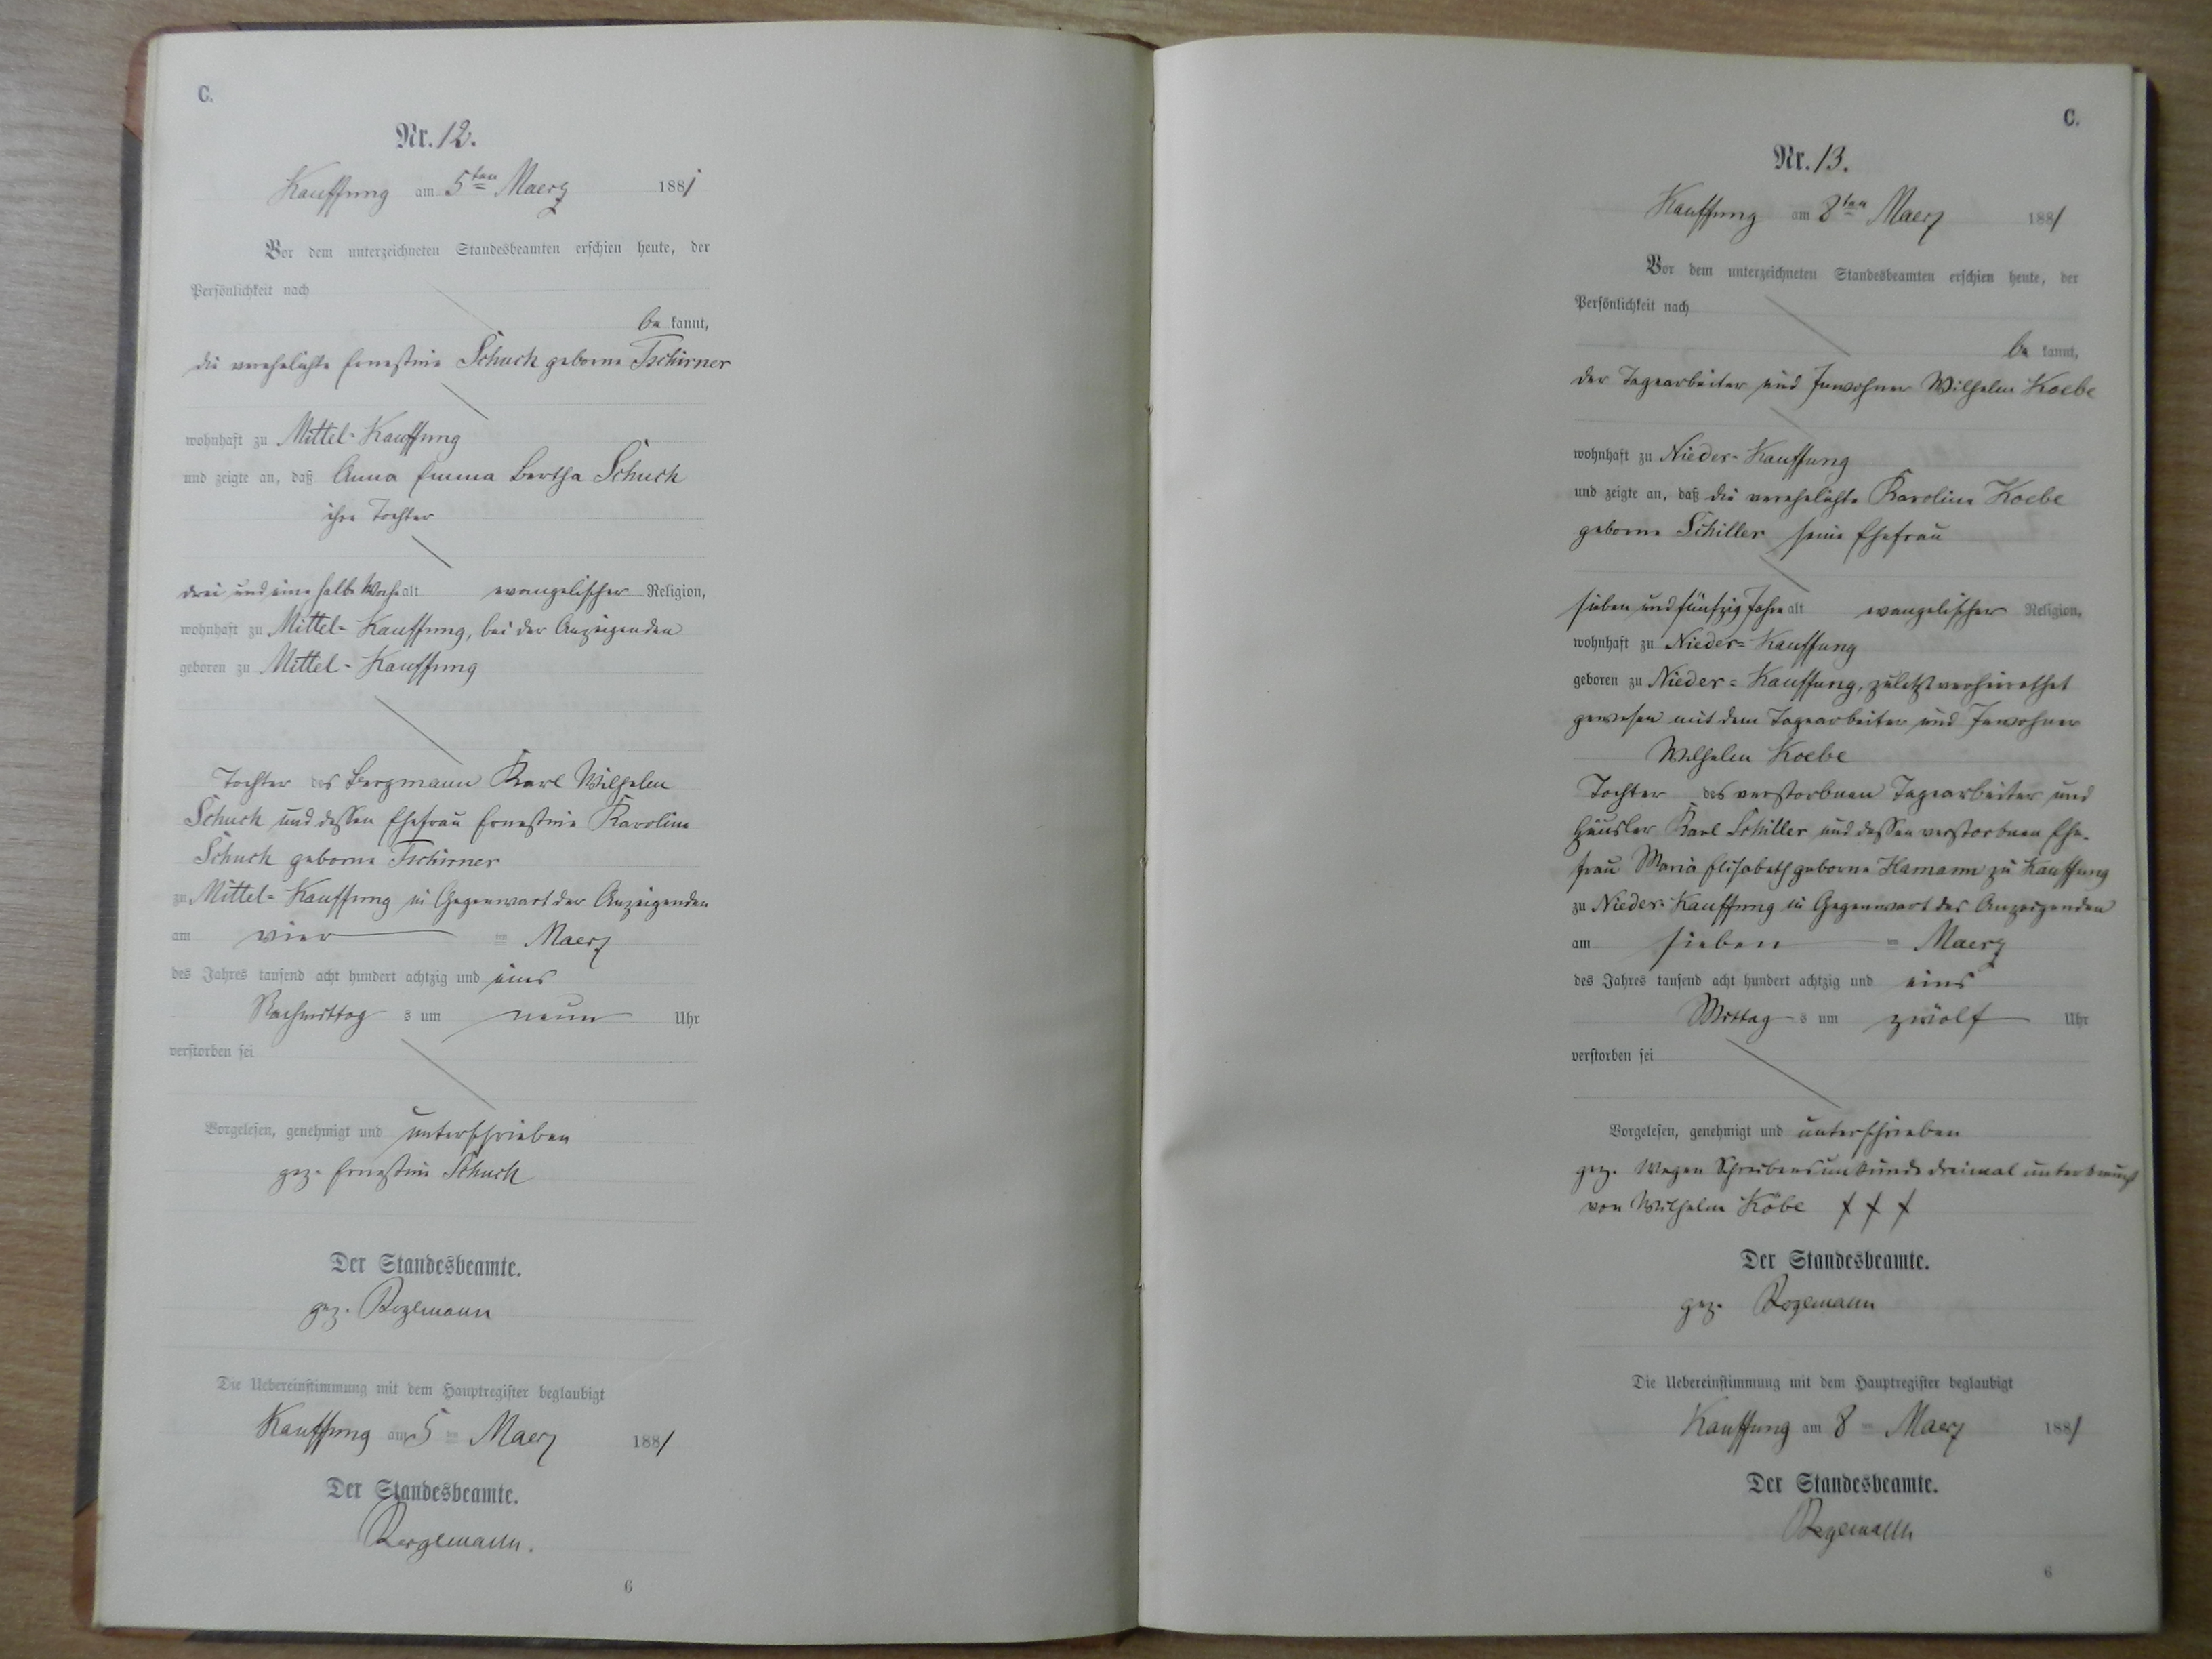 C.
Nr. 12.
Kauffung am 5ten Maerz 1881
Vor dem unterzeichneten Standesbeamten erschien heute, der
Persönlichkeit nach
be kannt,
die verehelichte Ernestine Schuch geborne Tschirner
wohnhaft zu Mittel-Kauffung
und zeigte an, daß Anna Emma Bertha Schuch
ihre Tochter
drei und eine halbe Woche alt evangelischer Religion,
wohnhaft zu Mittel-Kauffung, bei der Anzeigenden
geboren zu Mittel-Kauffung
Tochter des Bergmann Karl Wilhelm
Schuch und dessen Ehefrau Ernestine Karoline
Schuch geborne Tschirner
zu Mittel-Kauffung in Gegenwart der Anzeigenden
am vier ten Maerz
des Jahres tausend acht hundert achtzig und eins
Nachmittag s um neun Uhr
verstorben sei
Vorgelesen, genehmigt und unterschrieben
gez. Ernestine Schuch
Der Standesbeamte.
gez.
Die Uebereinstimmung mit dem Hauptregister beglaubigt
Kauffung am 5 ten Maerz 1881
Der Standesbeamte.
6
C.
Nr. 13.
Kauffung am 8ten Maerz 1881
Vor dem unterzeichneten Standesbeamten erschien heute, der
Persönlichkeit nach
be kannt,
der Tagearbeiter und Inwohner Wilhelm Koebe
wohnhaft zu Nieder-Kauffung
und zeigte an, daß die verehelichte Karoline Koebe
geborne Schiller seine Ehefrau
sieben und fünfzig Jahre alt evangelischer Religion,
wohnhaft zu Nieder-Kauffung
geboren zu Nieder-Kauffung, zuletzt verheirathet
gewesen mit dem Tagearbeiter und Inwohner
Wilhelm Koebe
Tochter des verstorbnen Tagearbeiter und
Häusler Karl Schiller und dessen verstorbnen Ehe-
frau Maria Elisabeth geborne Hamann zu Kauffung
zu Nieder-Kauffung in Gegenwart des Anzeigenden
am sieben ten Maerz
des Jahres tausend acht hundert achtzig und eins
Mittag s um zwölf Uhr
verstorben sei
Vorgelesen, genehmigt und unterschrieben
gez. Wegen Schreibensunkunde dreimal unterkreuzt
von Wilhelm Köbe + + +
Der Standesbeamte.
gez.
Die Uebereinstimmung mit dem Hauptregister beglaubigt
Kauffung am 8 ten Maerz 1881
Der Standesbeamte.
6